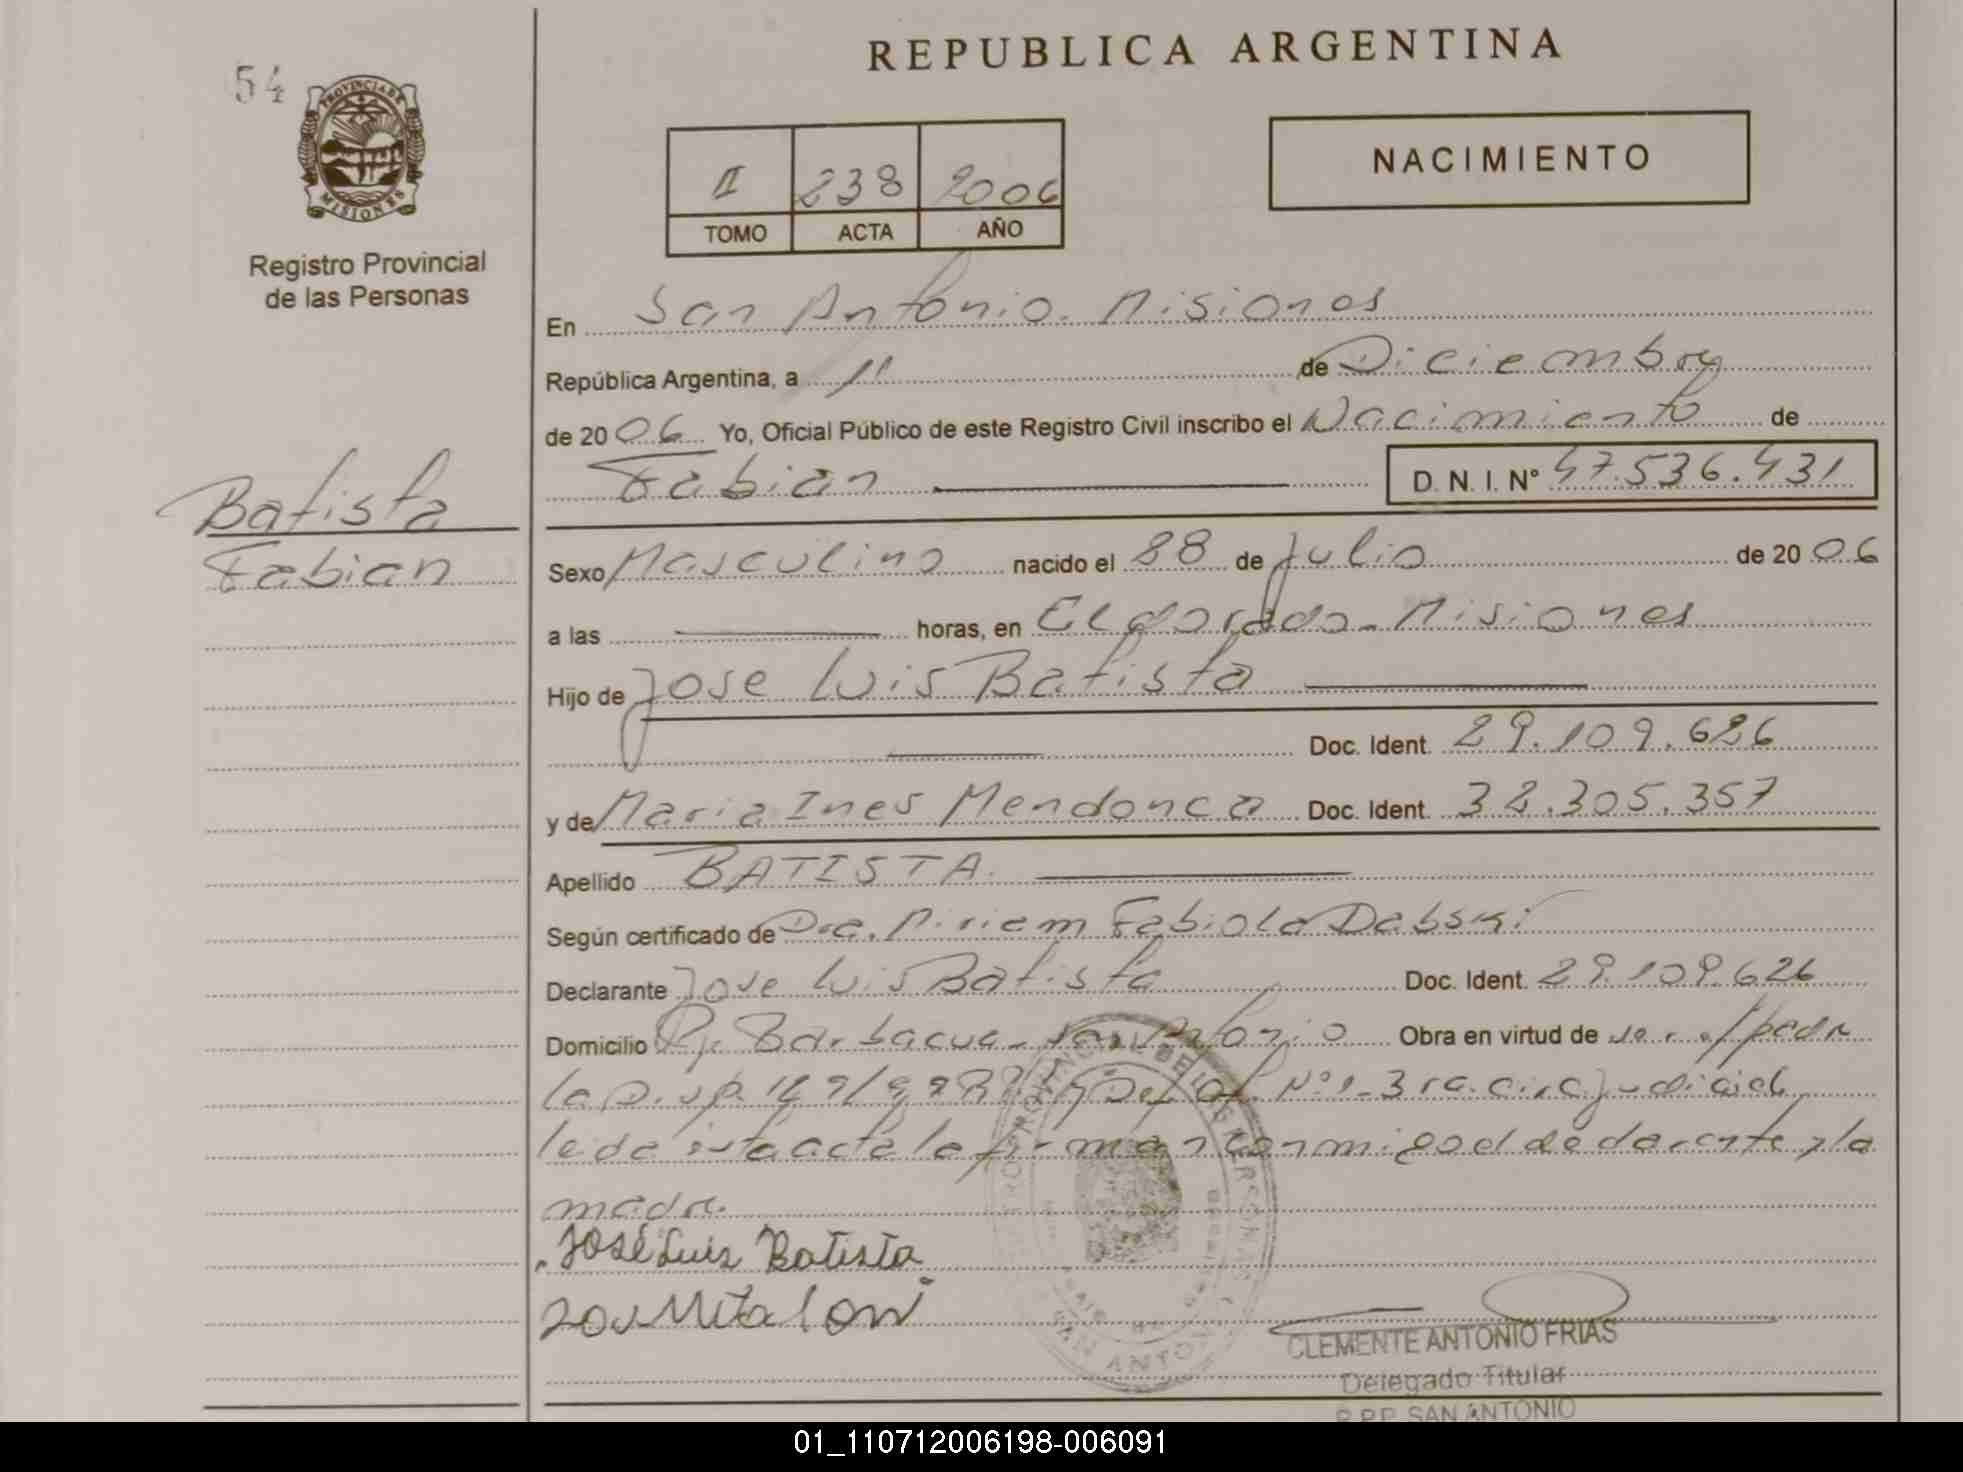 REPUBLICA ARGENTINA
54
PROVINCIA DE
MISIONES
Registro Provincial
de las Personas
NACIMIENTO
II 238 2006
TOMO ACTA AÑO
En San Antonio. Misiones
República Argentina, a 11 de Diciembre
de 2006 Yo, Oficial Público de este Registro Civil inscribo el Nacimiento de
Fabian D. N. I. Nº 47.536.431
Batista
Fabian
Sexo Masculino nacido el 28 de Julio de 2006
a las horas, en Eldorado - Misiones
Hijo de Jose Luis Batista
Doc. Ident. 29.109.626
y de Maria Ines Mendonca Doc. Ident. 32.305.357
Apellido BATISTA
Según certificado de Dra. Miriam Fabiola Dabski
Declarante Jose Luis Batista Doc. Ident. 29.109.626
Domicilio Barbacua - San Antonio Obra en virtud de
la 3ra. circ. judicial
leida esta acta la firman conmigo el declarante y la
madre.
José Luis Batista
CLEMENTE ANTONIO FRIAS
Delegado Titular
R.P.P. SAN ANTONIO
01_110712006198-006091